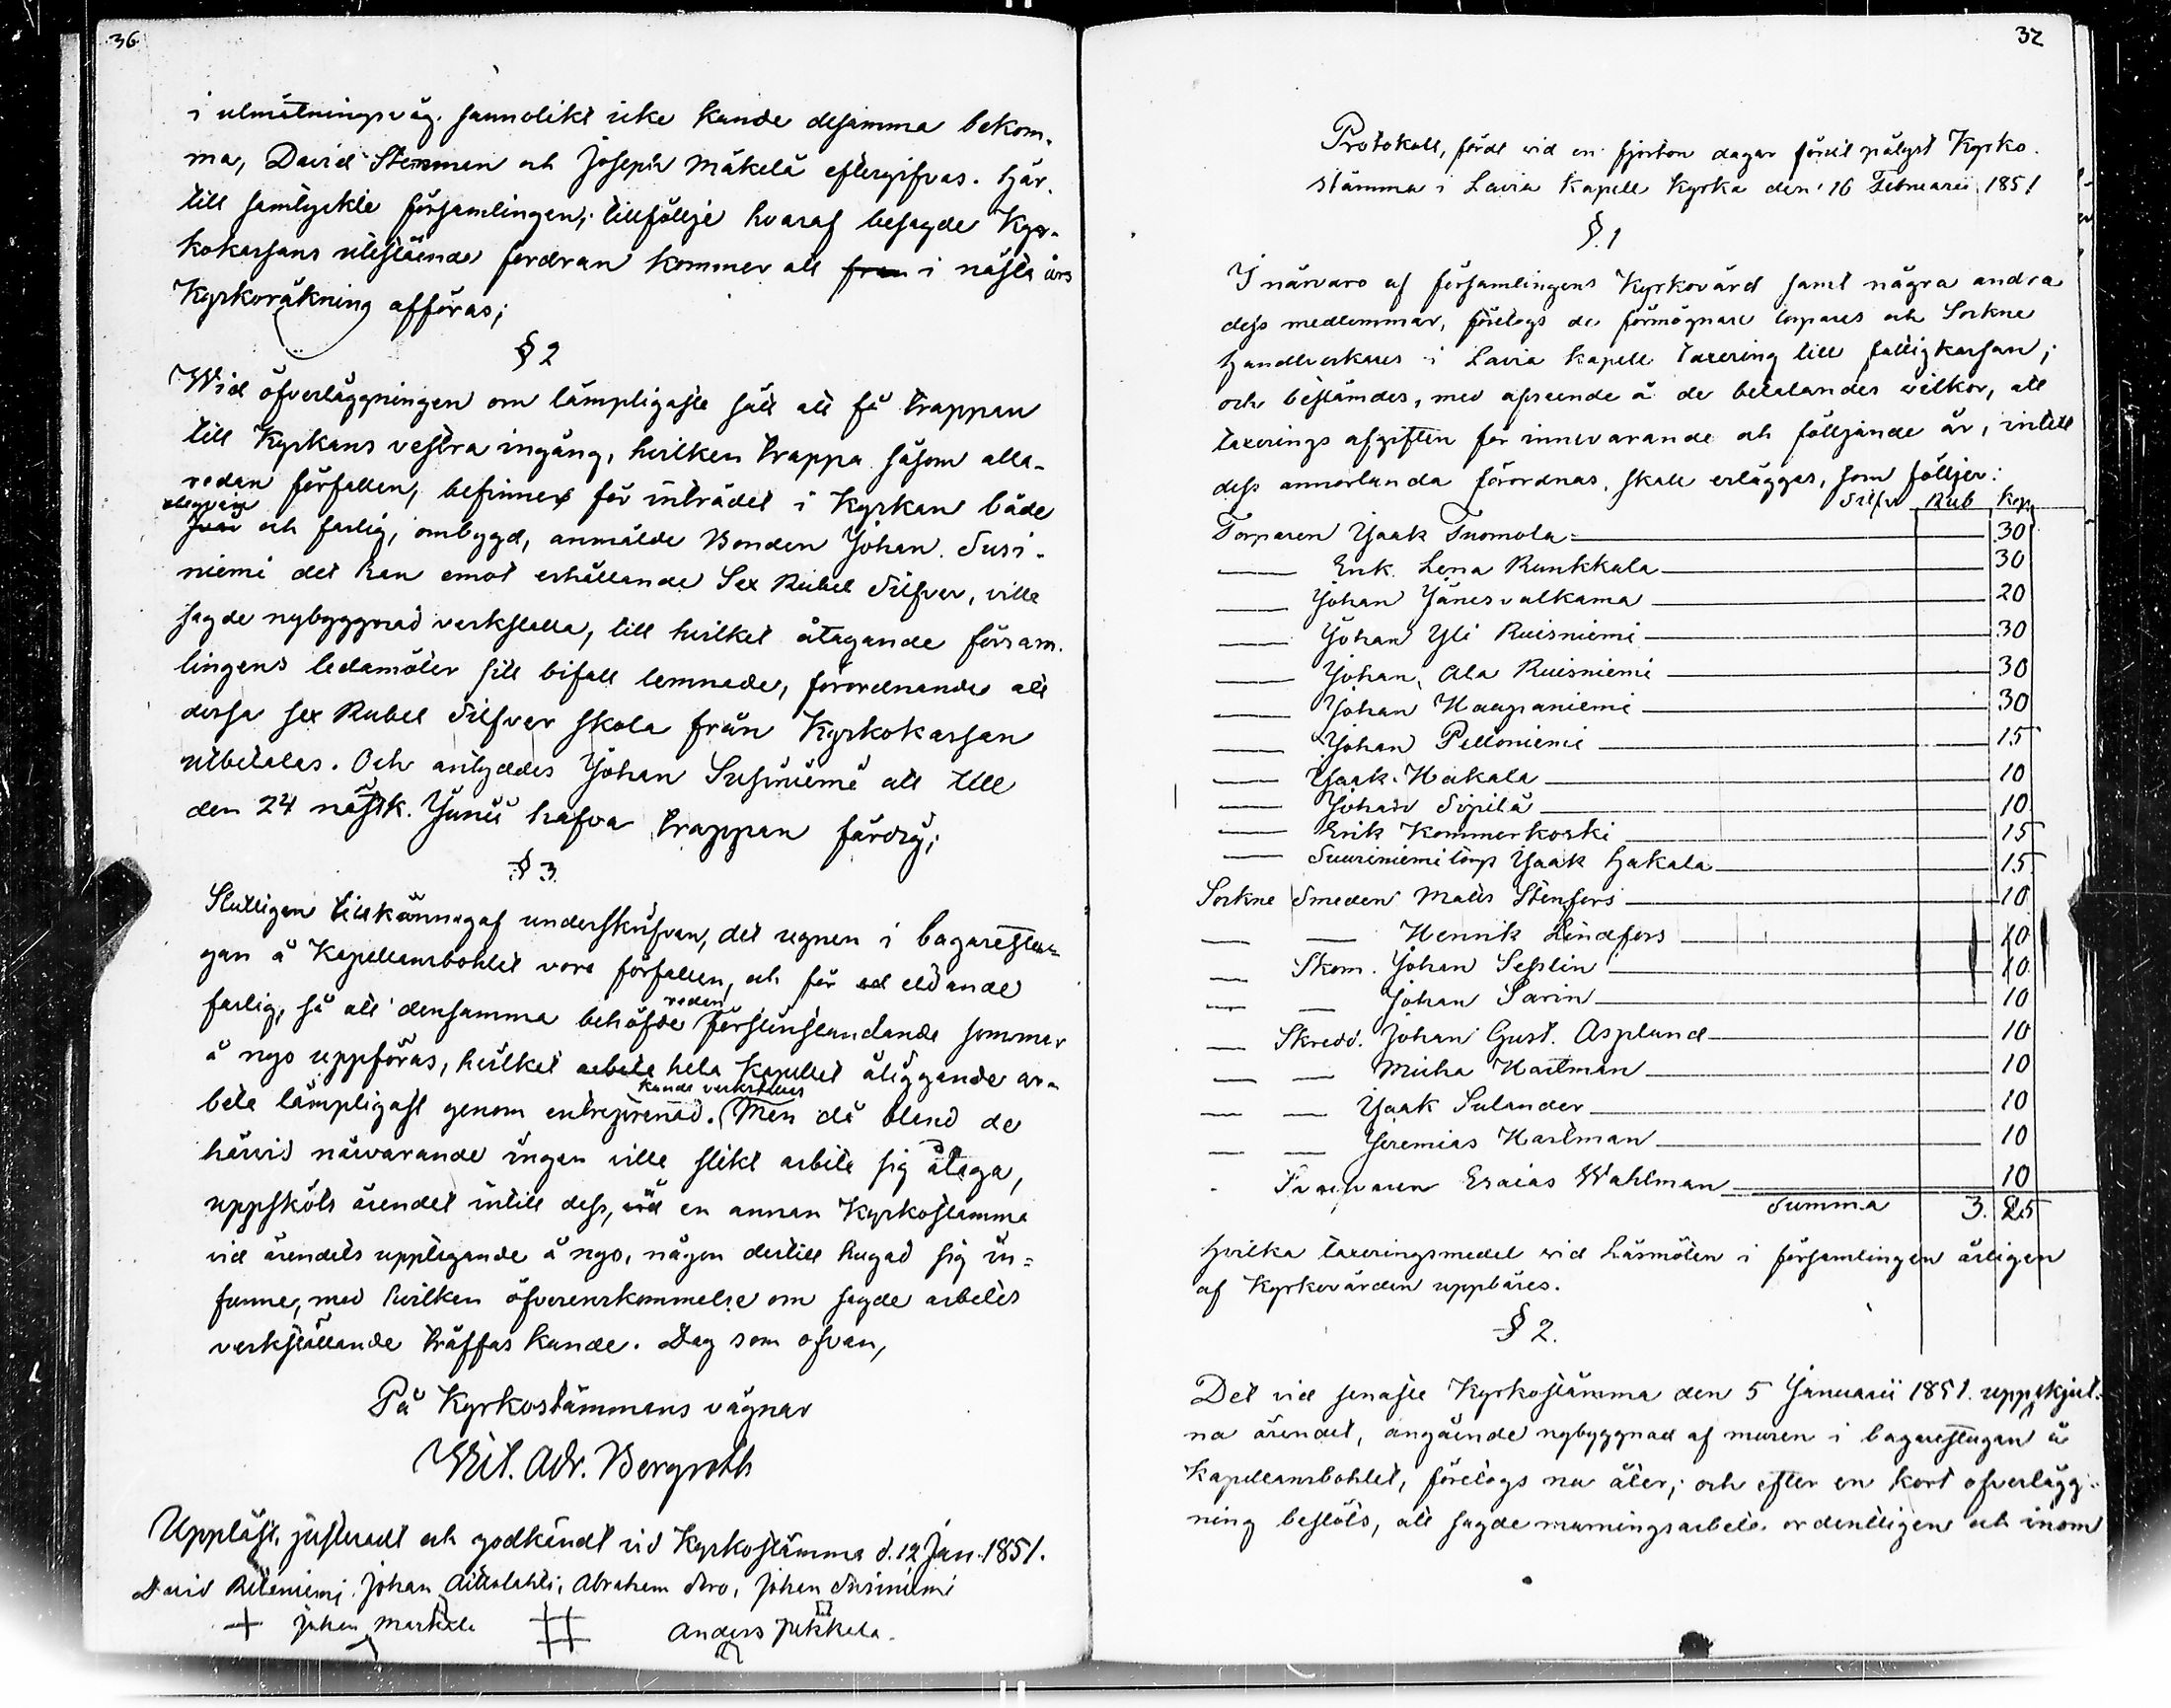 36
i utmätningsväg. sannolikt icke kunde desamma bekom-
ma, David Stenmen och Joseph Mäkelä eftergifvas. Här-
till samtyckte församlingen; tillföllje hvaraf besagde Kyr-
kokassans utestående fordran kommer att i nästa års
Kyrkoräkning afföras;
§ 2
Wid öfverläggningen om lämpligaste sätt att få trappan
till Kyrkans vestra ingång, hvilken trappa såsom alla-
redan förfallen, befinnes för inträdet i Kyrkan både
och farlig, ombygd, anmälde Bonden Johan Susi-
niemi det han emot erhållande Sex Rubel Silfver, ville
sagde nybyggnad verkställa, till hvilket åtagande försam-
lingens ledamöter sitt bifall lemnade, förordnandes att
dessa sex Rubel Silfver skola från Kyrkokassan
utbetalas. Och antyddes Johan Susiniemi att till
den 24 nästk. Junii hafva trappan färdig;
§ 3
Slutligen tillkännagaf underskrifvan, det ugnen i bagarestu-
gan å Kapellansbohlet vore förfallen, och för eldande
farlig, så att densamma behöfde redan förstinstundande sommar
å nyo uppföras, hvilket hela Kapellet åliggande ar-
bete lämpligast genom entreprenad kunde verkställas. Men då bland de
härvid närvarande ingen ville slikt arbete sig åtaga,
uppsköts ärendet intill dess, en annan Kyrkostämma
vid ärendets upptagande å nyo, någon dertill hugad sig in-
funne, med hvilken öfverenskommelse om sagde arbetes
verkställande träffas kunde. Dag som ofvan,
På Kyrkostämmans vägnar
Wil. Adr. Bergroth
Uppläst, justeradt och godkändt vid Kyrkostämma d. 12 Jan. 1851.
David Riteniemi, Johan Aittolahti, Abraham Aro, Johan Susiniemi
Johan Markkula Anders Jukkala.
37
Protokoll, fördt vid en fjorton dagar förut pålyst Kyrko-
stämma i Lavia Kapell Kyrka den 16 Februarii 1851
§.1
I närvaro af församlingens Kyrkovärd samt några andra
dess medlemmar, företogs de förmögnare torpares och Sockne
Handtverkares i Lavia Kapell taxering till fattigkassan;
och bestämdes, med afseende å de betalandes wilkor, att
taxerings afgiften för innevarande och följande år, intill
dess annorlunda förordnas, skall erlägges, som följer:
Silfver Rub Kop
Torparen Jaak Tuomola 30
Enk. Lena Runkkala 30
Johan Jänesvalkama 20
Johan Yli Ruisniemi 30
Johan Ala Ruisniemi 30
Johan Haapaniemi 30
Johan Pelloniemi 15
Jaak Hakala 10
Johan Sipilä 10
Erik Kommerkoski 15
Suuriniemi torp Jaak Hakala 15
Sockne Smeden Matts Stenfors 10
Henrik Lindfors 10
Skom. Johan Seslin 10
Johan Sarin 10
Skredd. Johan Gust. Asplund 10
Micha Hartman 10
Jaak Sulander 10
Jeremias Hartman 10
Esaias Wahlman 10
Summa 3. 25
Hvilka taxeringsmedel vid Läsmöten i församlingen årligen
af Kyrkovärden uppbäres.
§ 2.
Det vid senaste Kyrkostämma den 5 Januarii 1851. uppskjut-
na ärendet, angående nybyggnad af muren i bagarestugan å
Kapellansbohlet, företogs nu åter; och efter en kort öfverlägg-
ning beslöts, att sagde murningsarbete ordentligen och inom